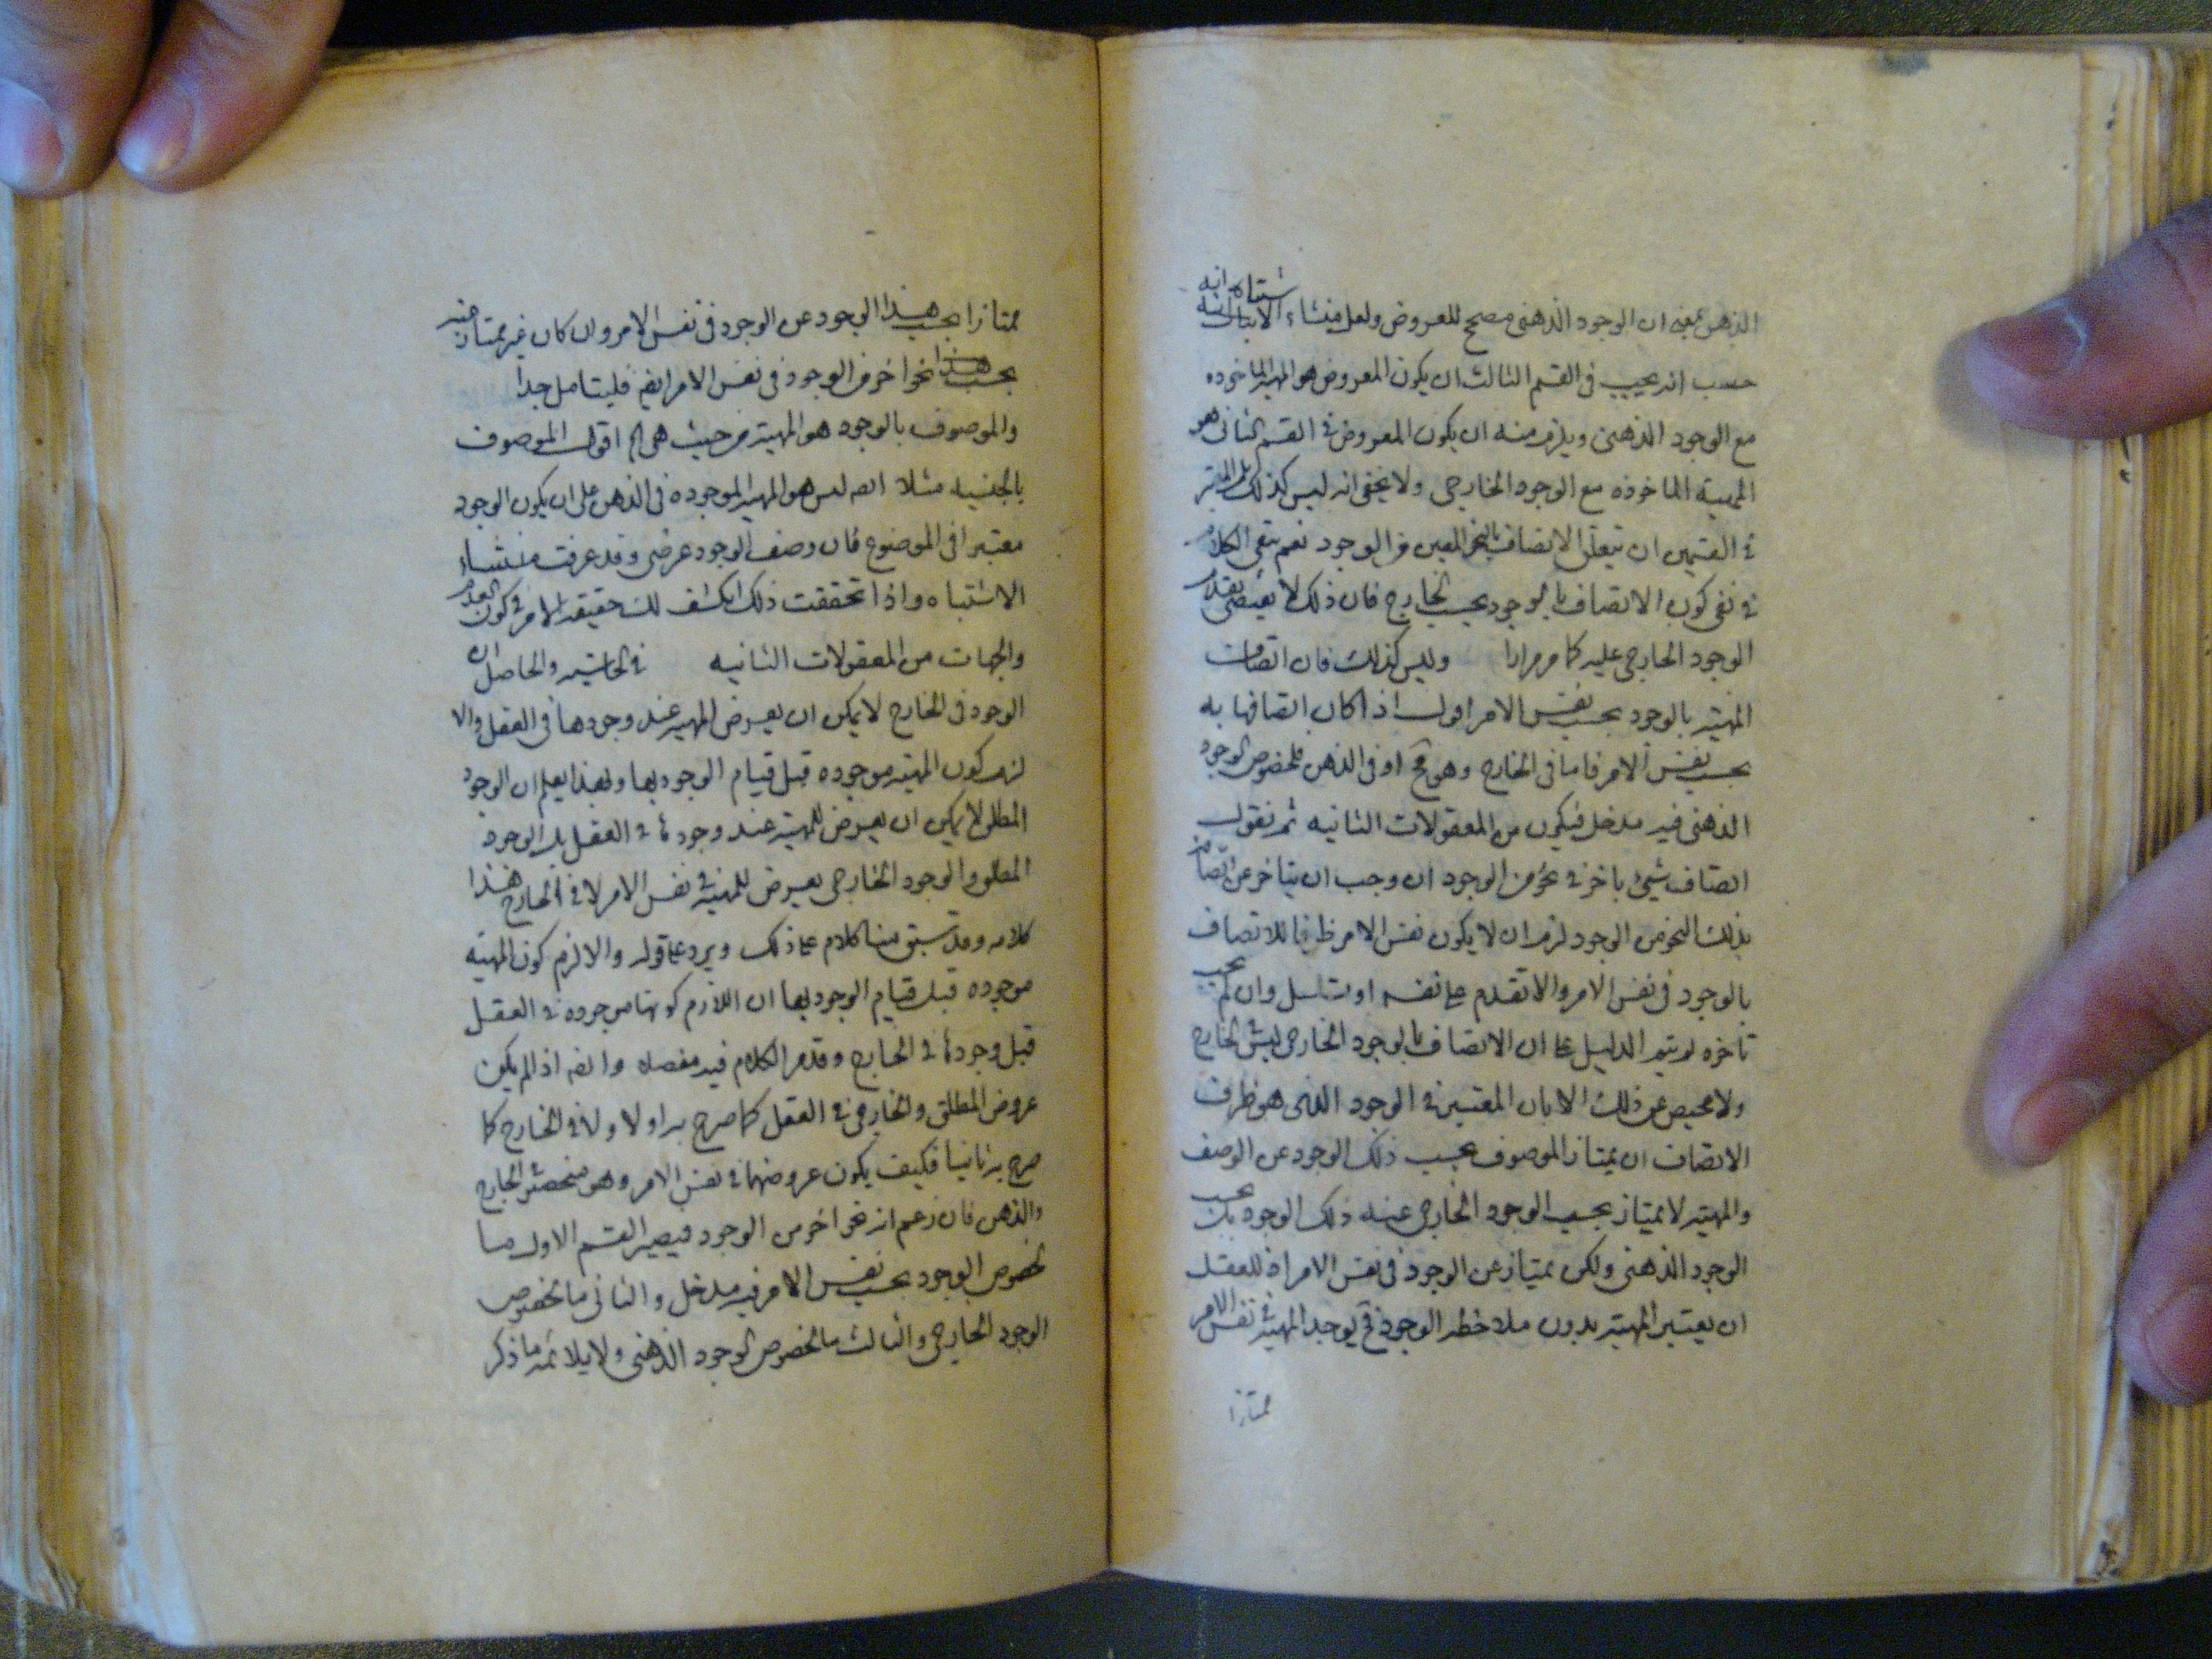 الذهن بمعنى ان الوجود الذهنى مصحح للعروض ولعل منشاء الاشتباه انه
حسب انه يجب فى القسم الثالث ان يكون المعروض هو المهية الماخوذه
مع الوجود الذهنى ويلزم منه ان يكون المعروض فى القسم الثانى هو
المهية الماخوذه مع الوجود الخارجى ولا يخفى انه ليس كذلك بل المعتبر
فى القسمين ان يتعلق الاتصاف بالنحو المعين من الوجود نعم بقى الكلام
فى نفى كون الاتصاف بالوجود بحسب الخارج فان ذلك لا يقتضى تقدم
الوجود الخارجى عليه كما مر مرارا وليس كذلك فان اتصاف
المهية بالوجود بحسب نفس الامر اقول اذا كان اتصافها به
بحسب نفس الامر فاما فى الخارج وهو مح او فى الذهن فلخصوص الوجود
الذهنى فيه مدخل فيكون من المعقولات الثانيه ثم نقول
اتصاف شيئ باخر فى نحو من الوجود ان وجب ان يتاخر عن اتصافه
بذلك النحو من الوجود لزم ان لا يكون نفس الامر ظرفا للاتصاف
بالوجود فى نفس الامر والا تقدم على نفسه او تسلسل وان لم يجب
تاخره لم يتم الدليل على ان الاتصاف بالوجود الخارجى ليس فى الخارج
ولا محيص عن ذلك الا بان المعتبر فى الوجود الذى هو ظرف
الاتصاف ان يمتاز الموصوف بحسب ذلك الوجود عن الوصف
والمهية لا يمتاز بحسب الوجود الخارجى عنه ذلك الوجود بل بحسب
الوجود الذهنى ولكن يمتاز عن الوجود فى نفس الامر اذ للعقل
ان يعتبر المهية بدون ملاحظة الوجود فح يوجد المهية فى نفس الامر
ممتازا
ممتازا بحسب هذا الوجود عن الوجود فى نفس الامر وان كان غير ممتاز عنه
بحسب نحوا خر من الوجود فى نفس الامر ايضا فليتامل جدا
والموصوف بالوجود هو المهية من حيث هى الخ اقول الموصوف
بالجنسيه مثلا ايضا ليس هو المهية الموجوده فى الذهن على ان يكون الوجود
معتبرا فى الموضوع فان وصف الوجود عرضى وقد عرفت منشاء
الاشتباه واذا تحققت ذلك انكشف لك حقيقة الامر فى كون العدم
والجهات من المعقولات الثانيه فى الحاشيه والحاصل ان
الوجود فى الخارج لا يمكن ان يعرض المهية عند وجودها فى العقل والا
لزم كون المهية موجوده قبل قيام الوجود بها وبهذا يعلم ان الوجود
المطلق لا يمكن ان يعرض للمهية عند وجودها فى العقل بل الوجود
المطلق والوجود الخارجى يعرض للمهية فى نفس الامر لا فى الخارج هذا
كلامه وقد سبق منا كلام على ذلك ويرد على قوله والا لزم كون المهية
موجوده قبل قيام الوجود بها ان اللازم كونها موجوده فى العقل
قبل وجودها فى الخارج وقد مر الكلام فيه مفصلا وايضا اذا لم يكن
عروض المطلق والخارجى فى العقل كما صرح به اولا ولا فى الخارج كما
صرح به ثانيا فكيف يكون عروضهما فى نفس الامر وهو منحصر فى الخارج
والذهن فان زعم انه نحو اخر من الوجود فيصير القسم الاول ما
لخصوص الوجود بحسب نفس الامر فيه مدخل والثانى ما لخصوص
الوجود الخارجى والثالث ما لخصوص الوجود الذهنى ولا يلائمه ما ذكر